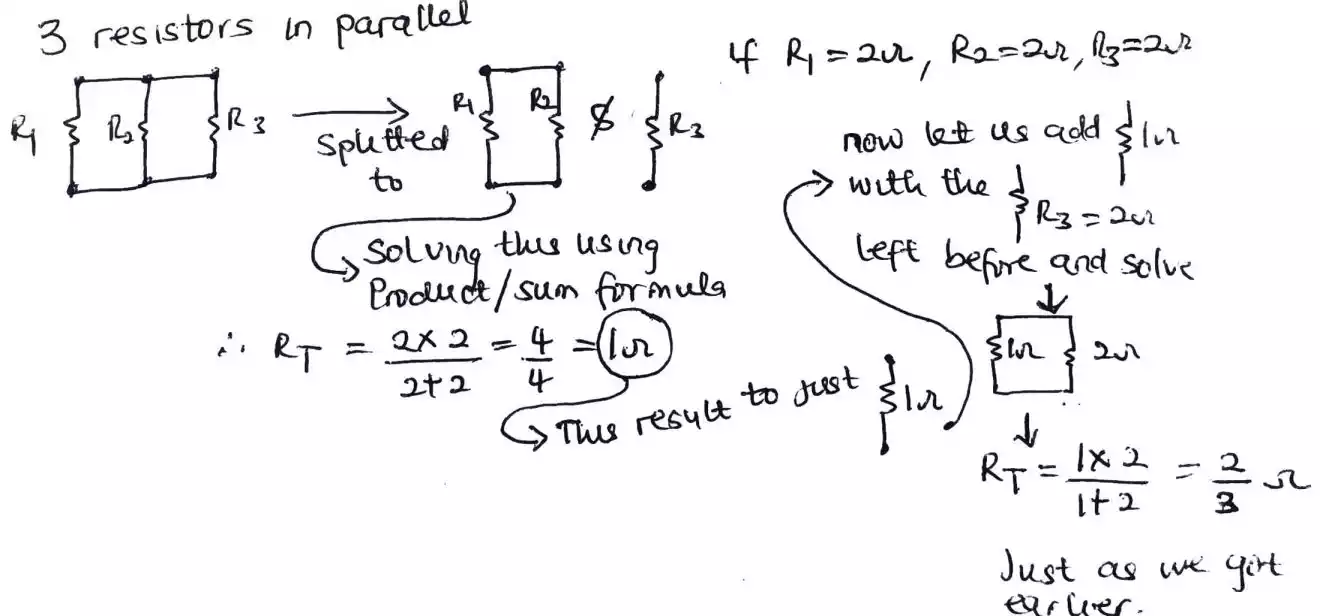 3 resistors in parallel
R1 R2 R3
Splitted
to
R1 R2 & R3
Solving this using
Product/sum formula
∴ RT = 2×2/2+2 = 4/4 = 1Ω
This result to just 1Ω
If R1 = 2Ω, R2 = 2Ω, R3 = 2Ω
now let us add 1Ω
with the R3 = 2Ω
left before and solve
1Ω 2Ω
RT = 1×2/1+2 = 2/3 Ω
Just as we got
earlier.